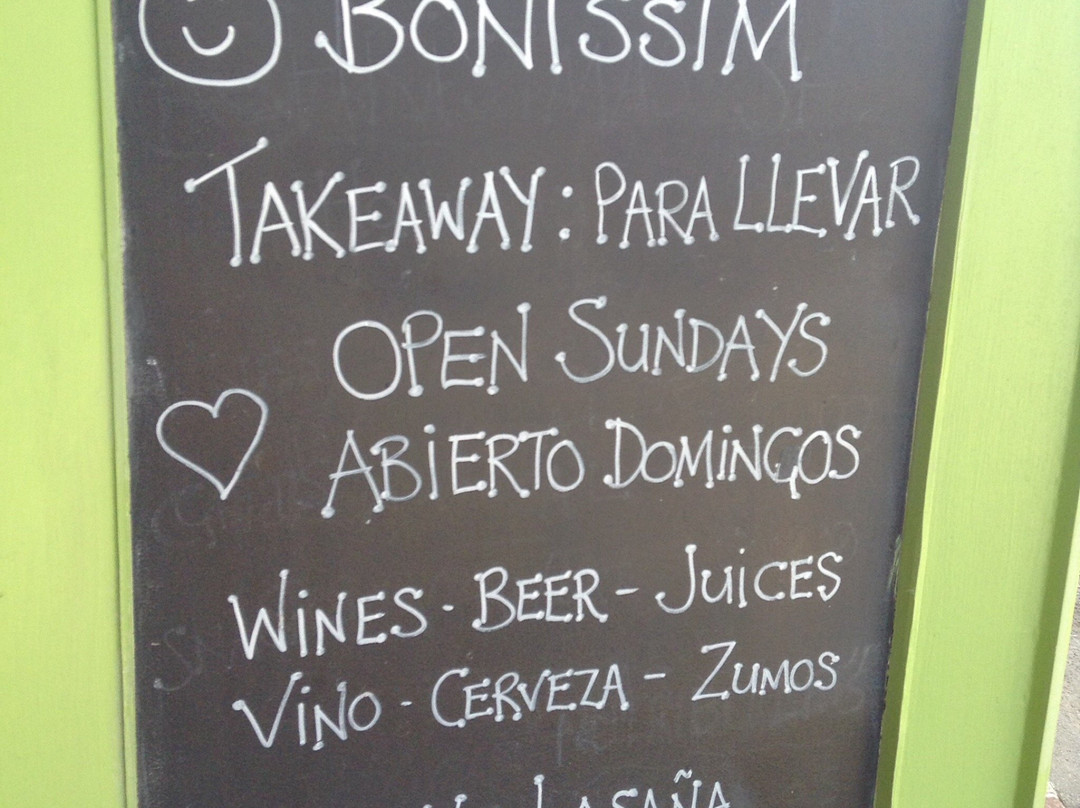 BONISSIM
TAKEAWAY: PARA LLEVAR
OPEN SUNDAYS
ABIERTO DOMINGOS
WINES - BEER - JUICES
VINO - CERVEZA - ZUMOS
LASAÑA